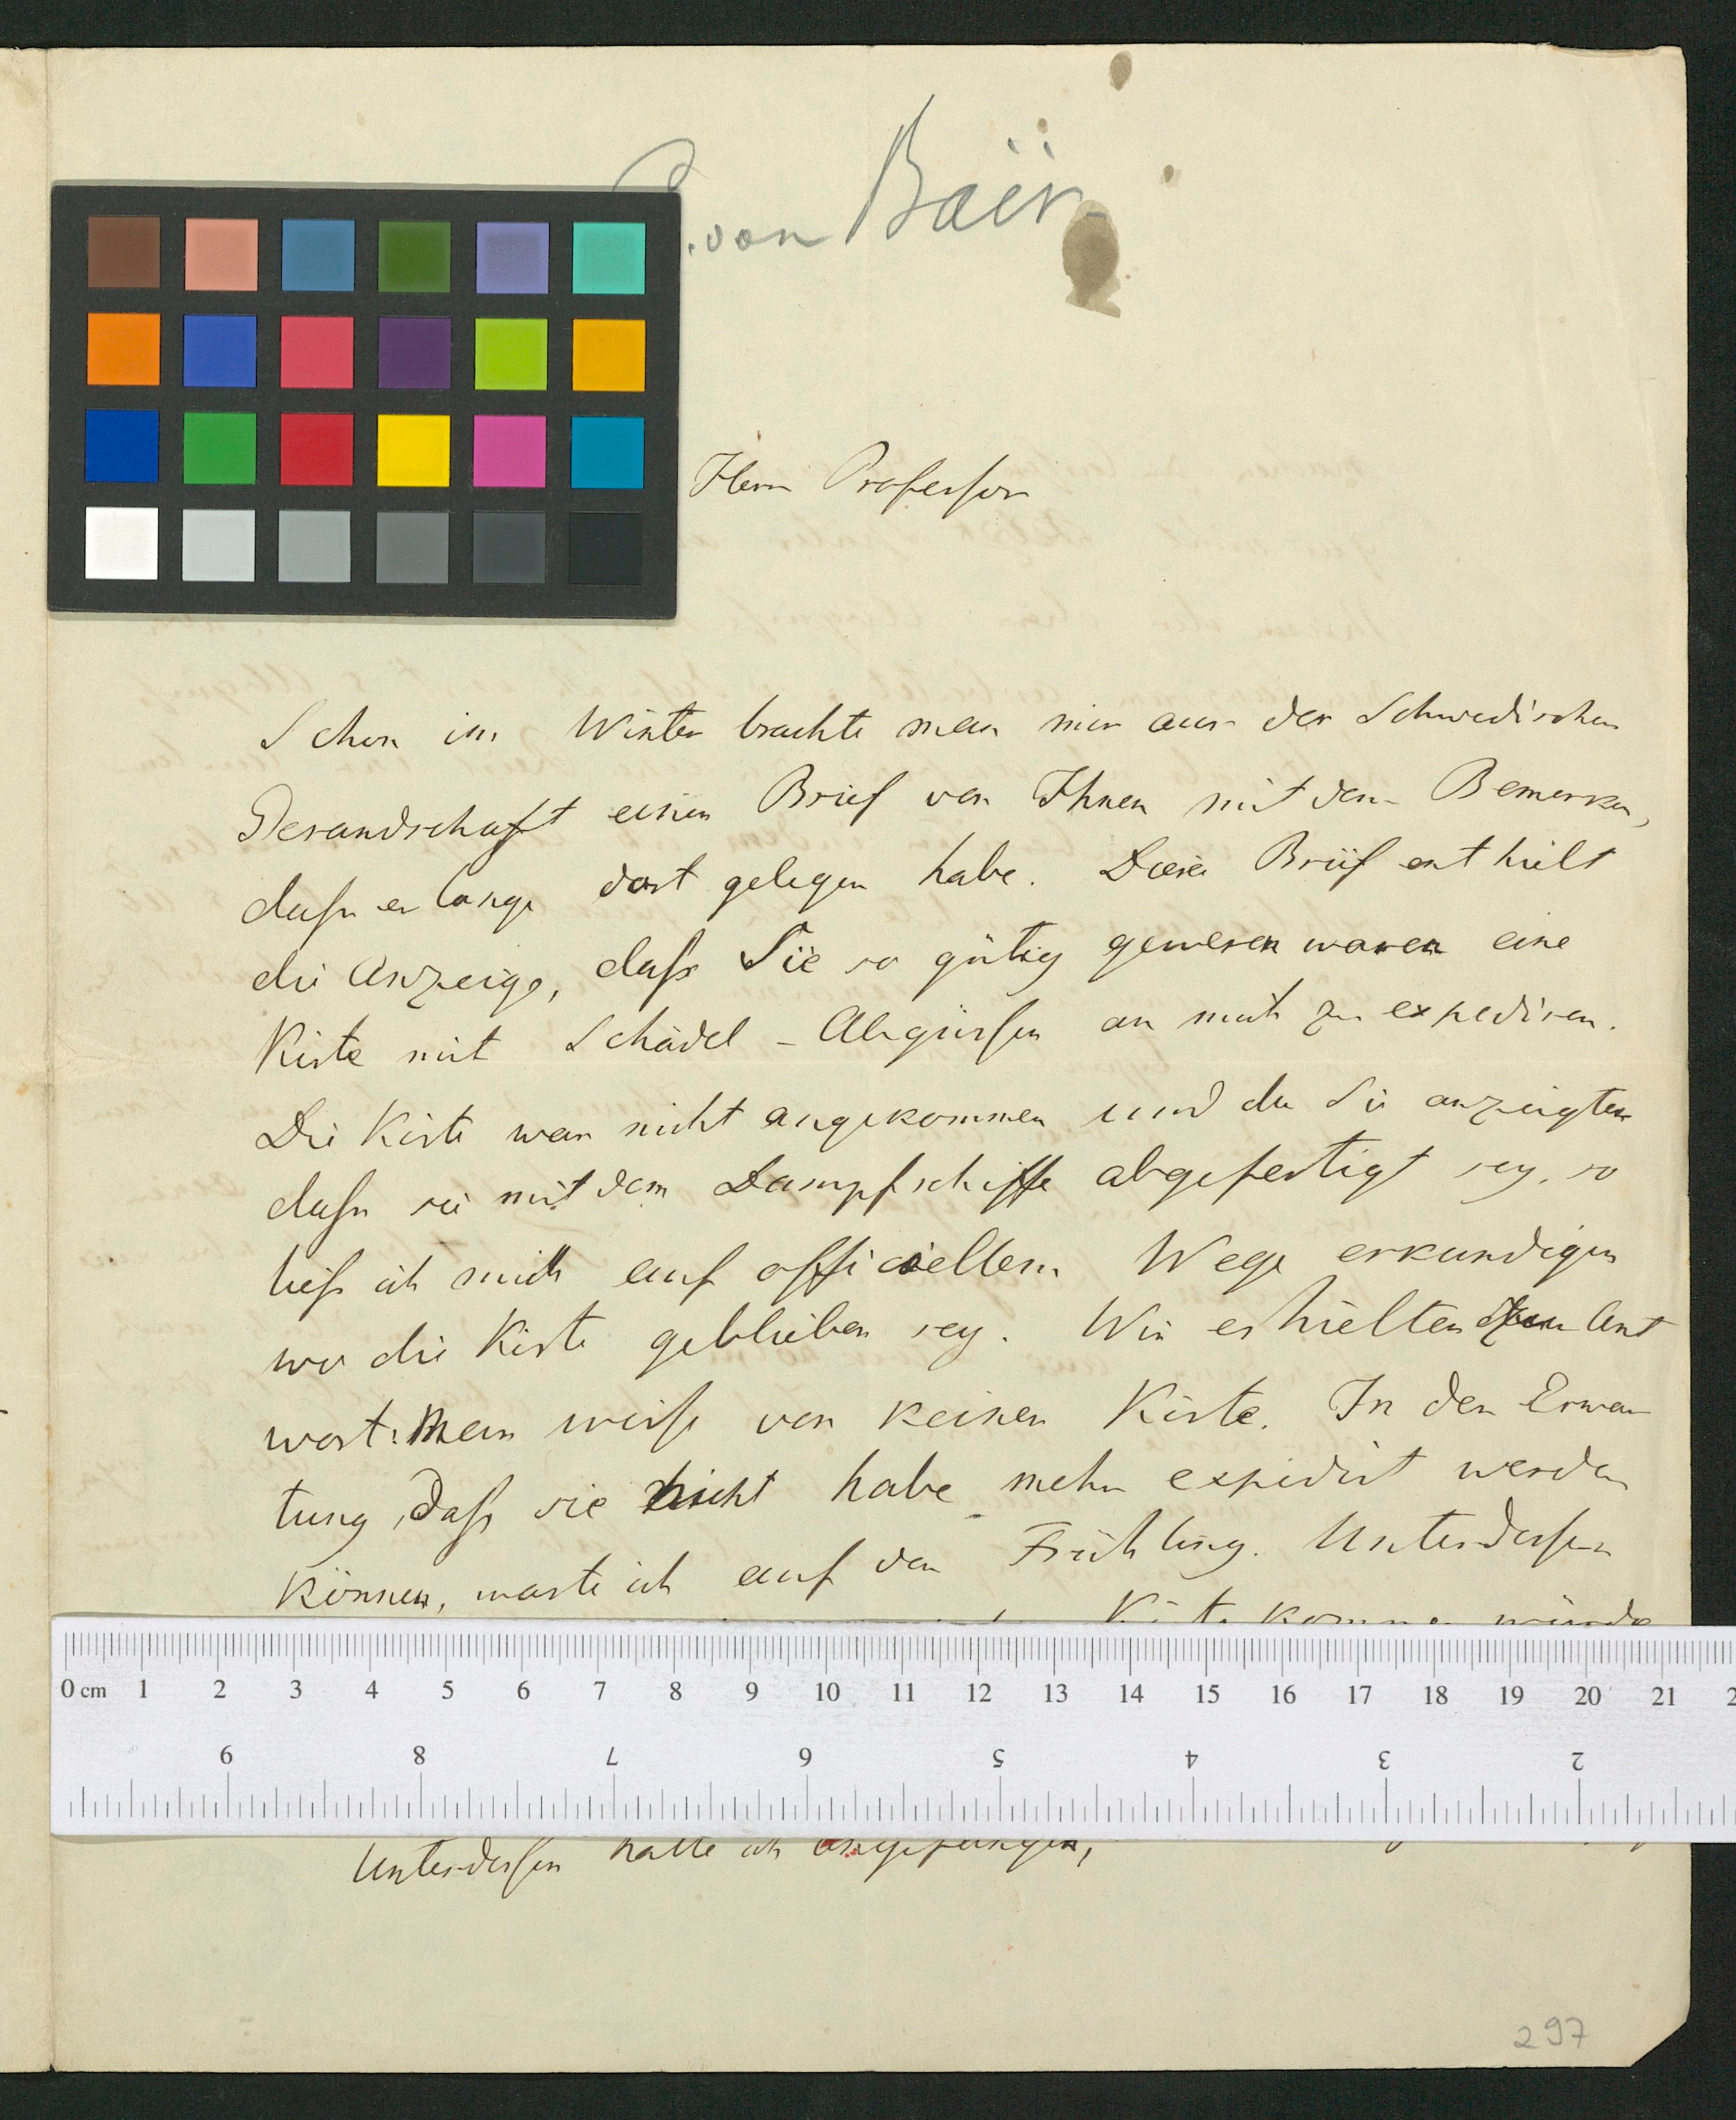 von Baër
Herr Professor
Schon im Winter brachte man mir aus der Schwedischen
Gesandschaft einen Brief von Ihnen mit dem Bemerken,
dass er lange dort gelegen habe. Dieser Brief enthielt
die Anzeige, dass Sie so gütig gewesen waren eine
Kiste mit Schädel-Abgüssen an mich zu expediren.
Die Kiste war nicht angekommen und da Sie anzeigten
dass sie mit dem Dampfschiffe abgefertigt sey, so
liess ich mich auf officiellem Wege erkundigen
wo die Kiste geblieben sey. Wir erhielten zur Ant
wort: Man weiss von keiner Kiste. In der Erwar
tung, dass sie nicht habe mehr expedirt werden
können, warte ich auf den Frühling. Unterdessen
Kiste kommen würde
0 cm 1 2 3 4 5 6 7 8 9 10 11 12 13 14 15 16 17 18 19 20 21 2
9 8 7 6 5 4 3 2
Unterdessen hatte ich angefangen,
297